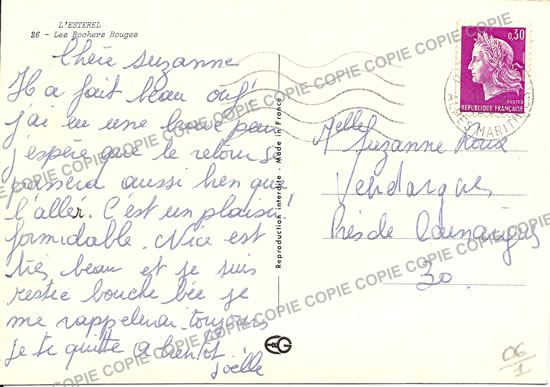 L'ESTEREL
26 - Les Rochers Rouges
Chère Suzanne
Il a fait beau ouf!
j'ai eu une heure peur
j'espère que le retour
passera aussi bien que
l'aller. C'est un plaisir
formidable. Nice est
très beau et je suis
restée bouche bée je
me rappellerai toujours
je te quitte à bientôt
Joëlle
Reproduction interdite - Made in France
0,30
POSTES
REPUBLIQUE FRANÇAISE
ALPES MARITIMES
Melle Suzanne Roux
Vendargues
Près de
30
06
1
COPIE COPIE COPIE COPIE COPIE COPIE COPIE COPIE COPIE
COPIE COPIE COPIE COPIE COPIE COPIE COPIE COPIE COPIE